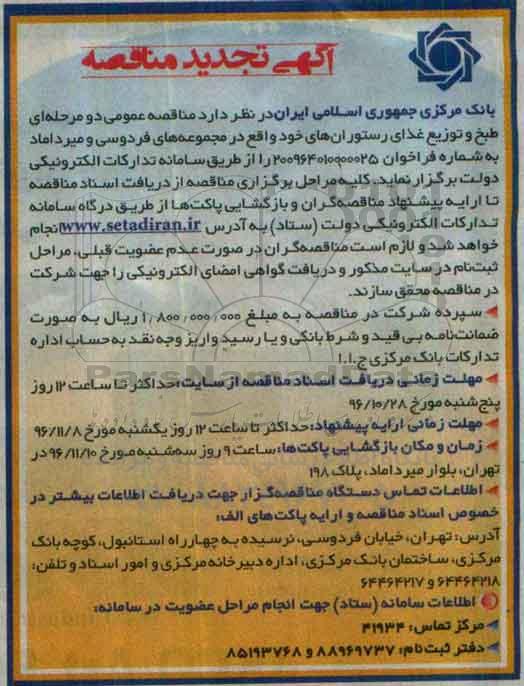 آگهی تجدید مناقصه
بانک مرکزی جمهوری اسلامی ایران در نظر دارد مناقصه عمومی دو مرحله‌ای
طبخ و توزیع غذای رستوران‌های خود واقع در مجموعه‌های فردوسی و میرداماد
به شماره فراخوان ۲۰۰۹۶۴۰۱۰۰۰۰۰۲۵ را از طریق سامانه تدارکات الکترونیکی
دولت برگزار نماید. کلیه مراحل برگزاری مناقصه از دریافت اسناد مناقصه
تا ارایه پیشنهاد مناقصه‌گران و بازگشایی پاکت‌ها از طریق درگاه سامانه
تدارکات الکترونیکی دولت (ستاد) به آدرس www.setadiran.ir انجام
خواهد شد و لازم است مناقصه‌گران در صورت عدم عضویت قبلی، مراحل
ثبت‌نام در سایت مذکور و دریافت گواهی امضای الکترونیکی را جهت شرکت
در مناقصه محقق سازند.
سپرده شرکت در مناقصه به مبلغ ۱٫۸۰۰٫۰۰۰٫۰۰۰ ریال به صورت
ضمانت‌نامه بی قید و شرط بانکی و یا رسید واریز وجه نقد به حساب اداره
تدارکات بانک مرکزی ج.ا.ا
مهلت زمانی دریافت اسناد مناقصه از سایت: حداکثر تا ساعت ۱۲ روز
پنج‌شنبه مورخ ۹۶/۱۰/۲۸
مهلت زمانی ارایه پیشنهاد: حداکثر تا ساعت ۱۲ روز یکشنبه مورخ ۹۶/۱۱/۸
زمان و مکان بازگشایی پاکت‌ها: ساعت ۹ روز سه‌شنبه مورخ ۹۶/۱۱/۱۰ در
تهران، بلوار میرداماد، پلاک ۱۹۸
اطلاعات تماس دستگاه مناقصه‌گزار جهت دریافت اطلاعات بیشتر در
خصوص اسناد مناقصه و ارایه پاکت‌های الف:
آدرس: تهران، خیابان فردوسی، نرسیده به چهارراه استانبول، کوچه بانک
مرکزی، ساختمان بانک مرکزی، اداره دبیرخانه مرکزی و امور اسناد و تلفن:
۶۴۴۶۴۲۱۸ و ۶۴۴۶۴۲۱۷
اطلاعات سامانه (ستاد) جهت انجام مراحل عضویت در سامانه:
مرکز تماس: ۴۱۹۳۴
دفتر ثبت نام: ۸۸۹۶۹۷۳۷ و ۸۵۱۹۳۷۶۸
ParsNamadData